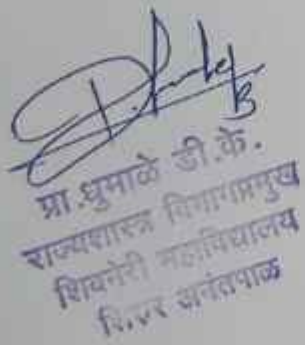 प्रा.धुमाळे डी.के.
राज्यशास्त्र विभागप्रमुख
शिवनेरी महाविद्यालय
शिरूर अनंतपाळ